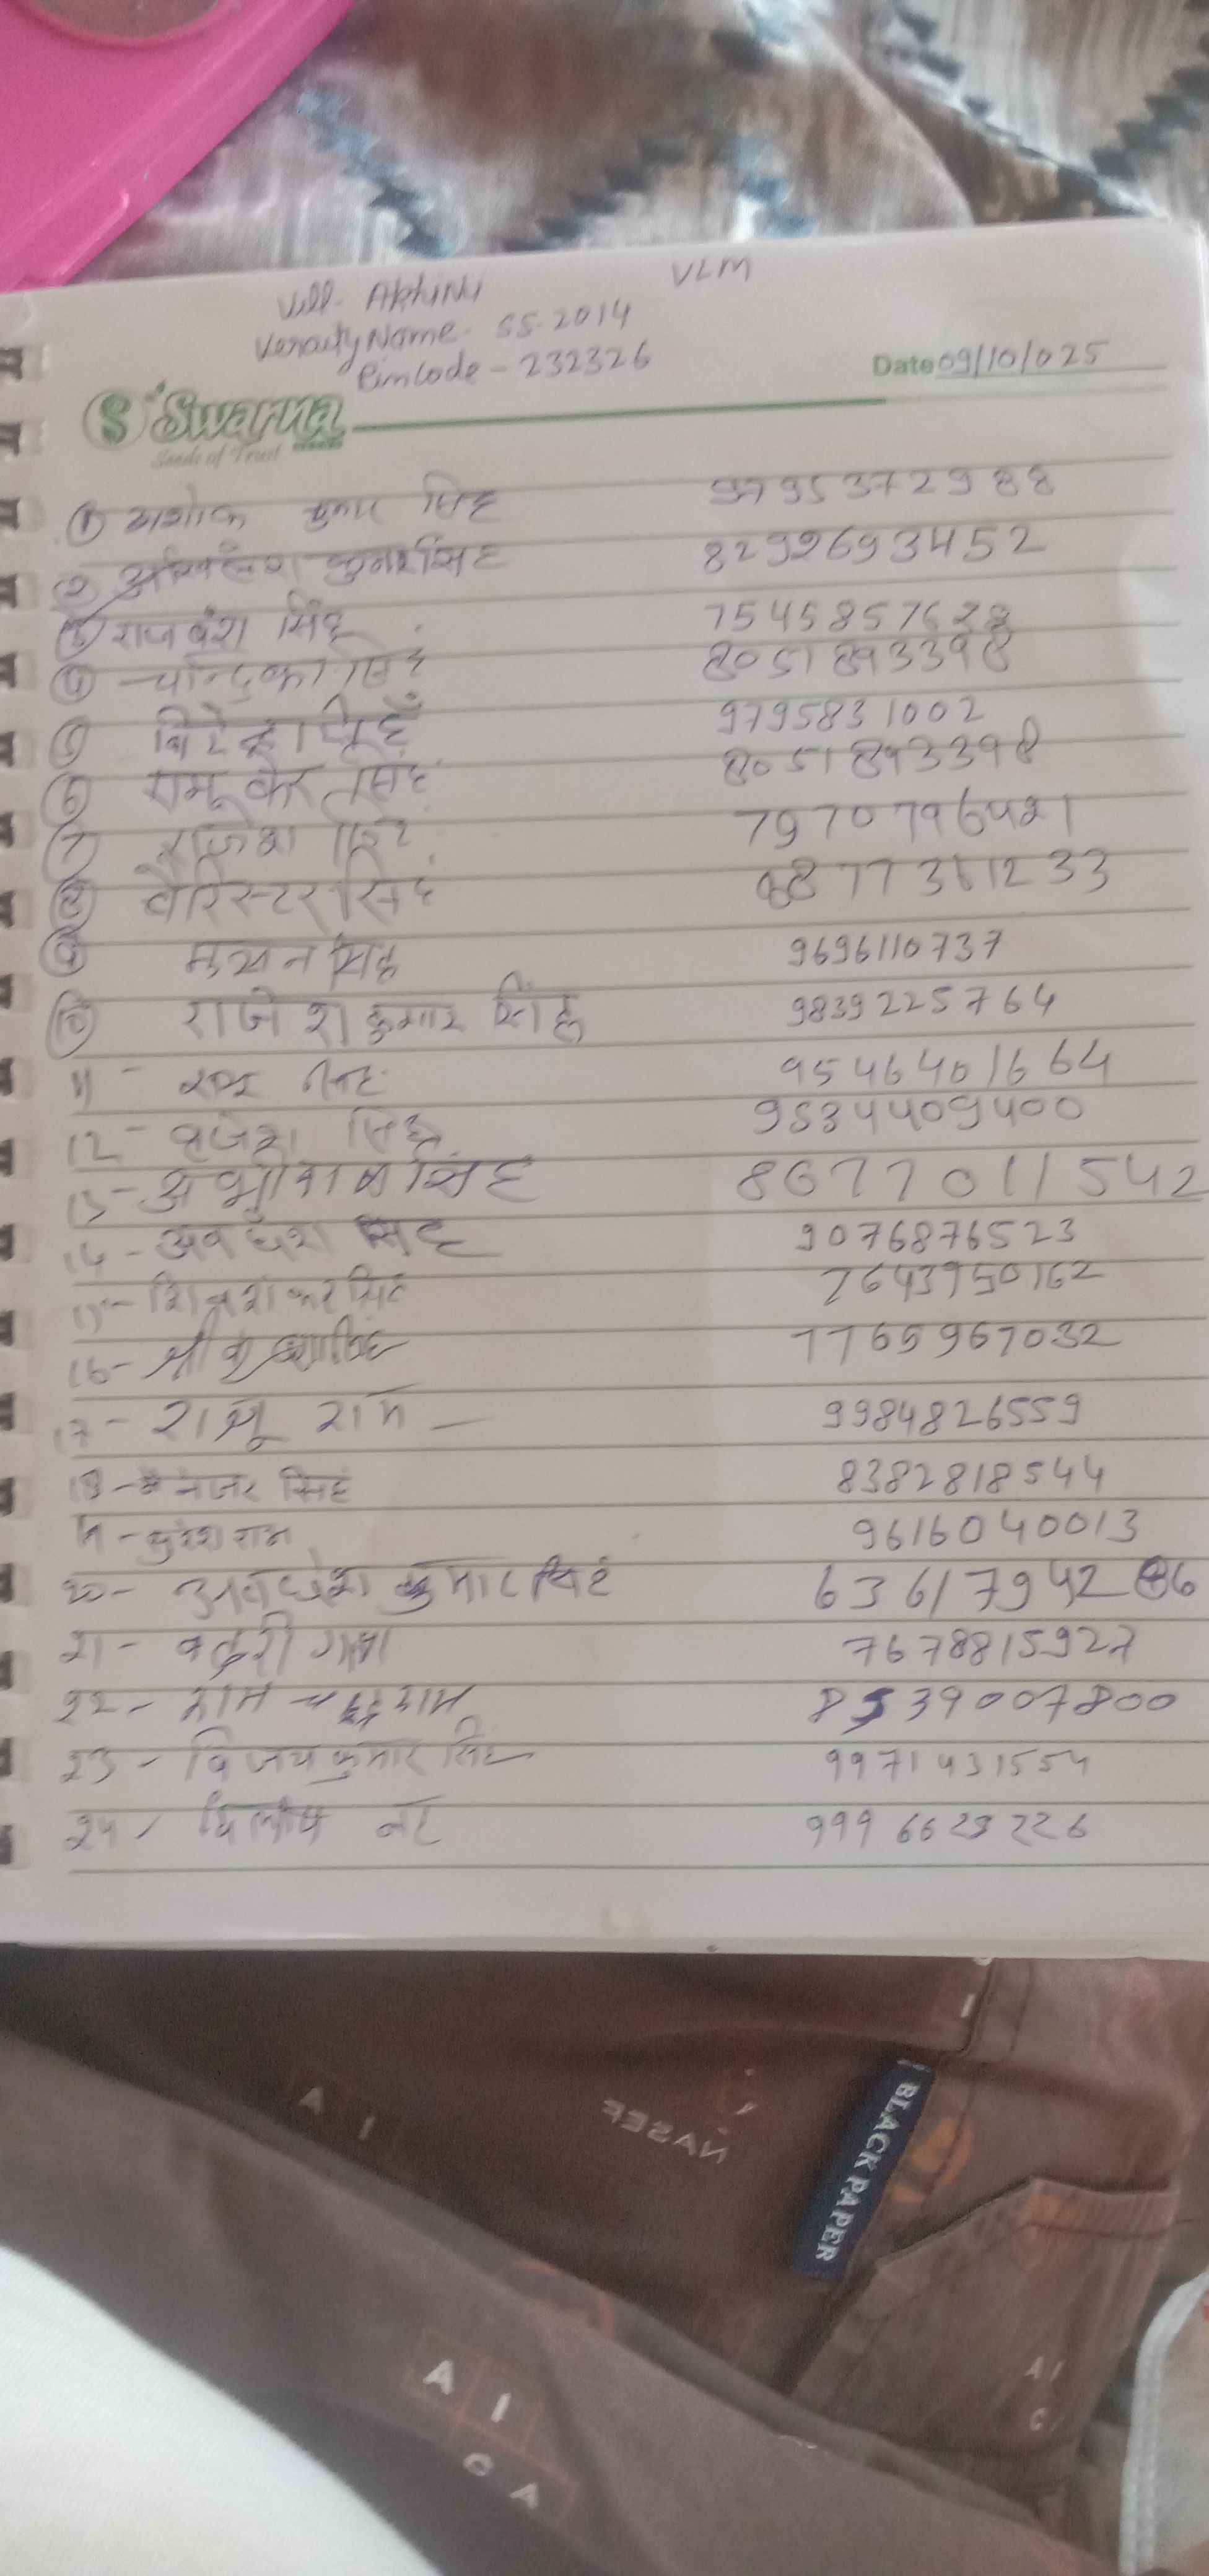 Vill- Akhini VLM
Veraity Name- SS-2014
Pincode - 232326
Date 09/10/025
S Swarna
Seeds of Trust
① अशोक कुमार सिंह 9795372988
② अखिलेश कुमार सिंह 8292693452
③ राजवंश सिंह 7545857628
④ सिंह 8051893398
⑤ 9795831002
⑥ सिंह 8051893398
⑦ राजेश सिंह 7970796421
⑧ बैरिस्टर सिंह 8877361233
⑨ सिंह 9696110737
⑩ राजेश कुमार सिंह 9839225764
11- सिंह 9546401664
12- बृजेश सिंह 9534409400
13- सिंह 8677011542
14- अवधेश सिंह 9076876523
15- शिवशंकर सिंह 7643950162
16- श्री कृष्णा सिंह 7765967032
17- राजू राम - 9984826559
18- मैनेजर सिंह 8382818544
19- राम 9616040013
20- अवधेश कुमार सिंह 63617942 6
21- 7678815927
22- राम चन्द्र राम 8539007800
23- विजय कुमार सिंह 9971431554
24- दिलीप 9996623226
BLACK PAPER
NASEF
A I
A I
G A
A I
C